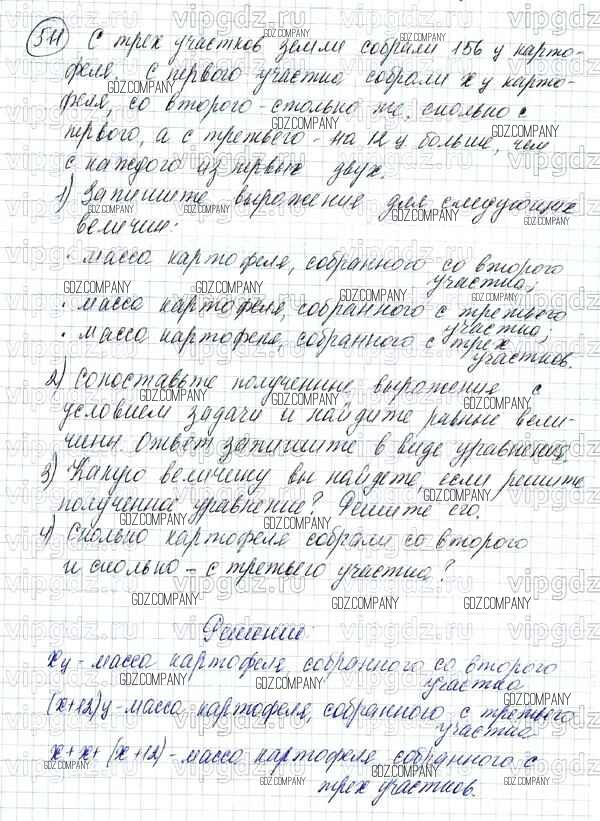 511 С трех участков земли собрали 156 ц карто-
феля. С первого участка собрали x ц карто-
феля, со второго - столько же, сколько с
первого, а с третьего - на 12 ц больше, чем
с каждого из первых двух.
1) Запишите выражения для следующих
величин:
· масса картофеля, собранного со второго
участка;
· масса картофеля, собранного с третьего
участка;
· масса картофеля, собранного с трех
участков.
2) Сопоставьте полученные выражения с
условием задачи и найдите равные вели-
чины. Ответ запишите в виде уравнения.
3) Какую величину вы найдете, если решите
полученное уравнение? Решите его.
4) Сколько картофеля собрали со второго
и сколько - с третьего участка?
Решение:
x ц - масса картофеля, собранного со второго
участка
(x+12) ц - масса картофеля, собранного с третьего
участка
x+x+(x+12) - масса картофеля собранного с
трех участков.
vipgdz.ru
GDZ.COMPANY